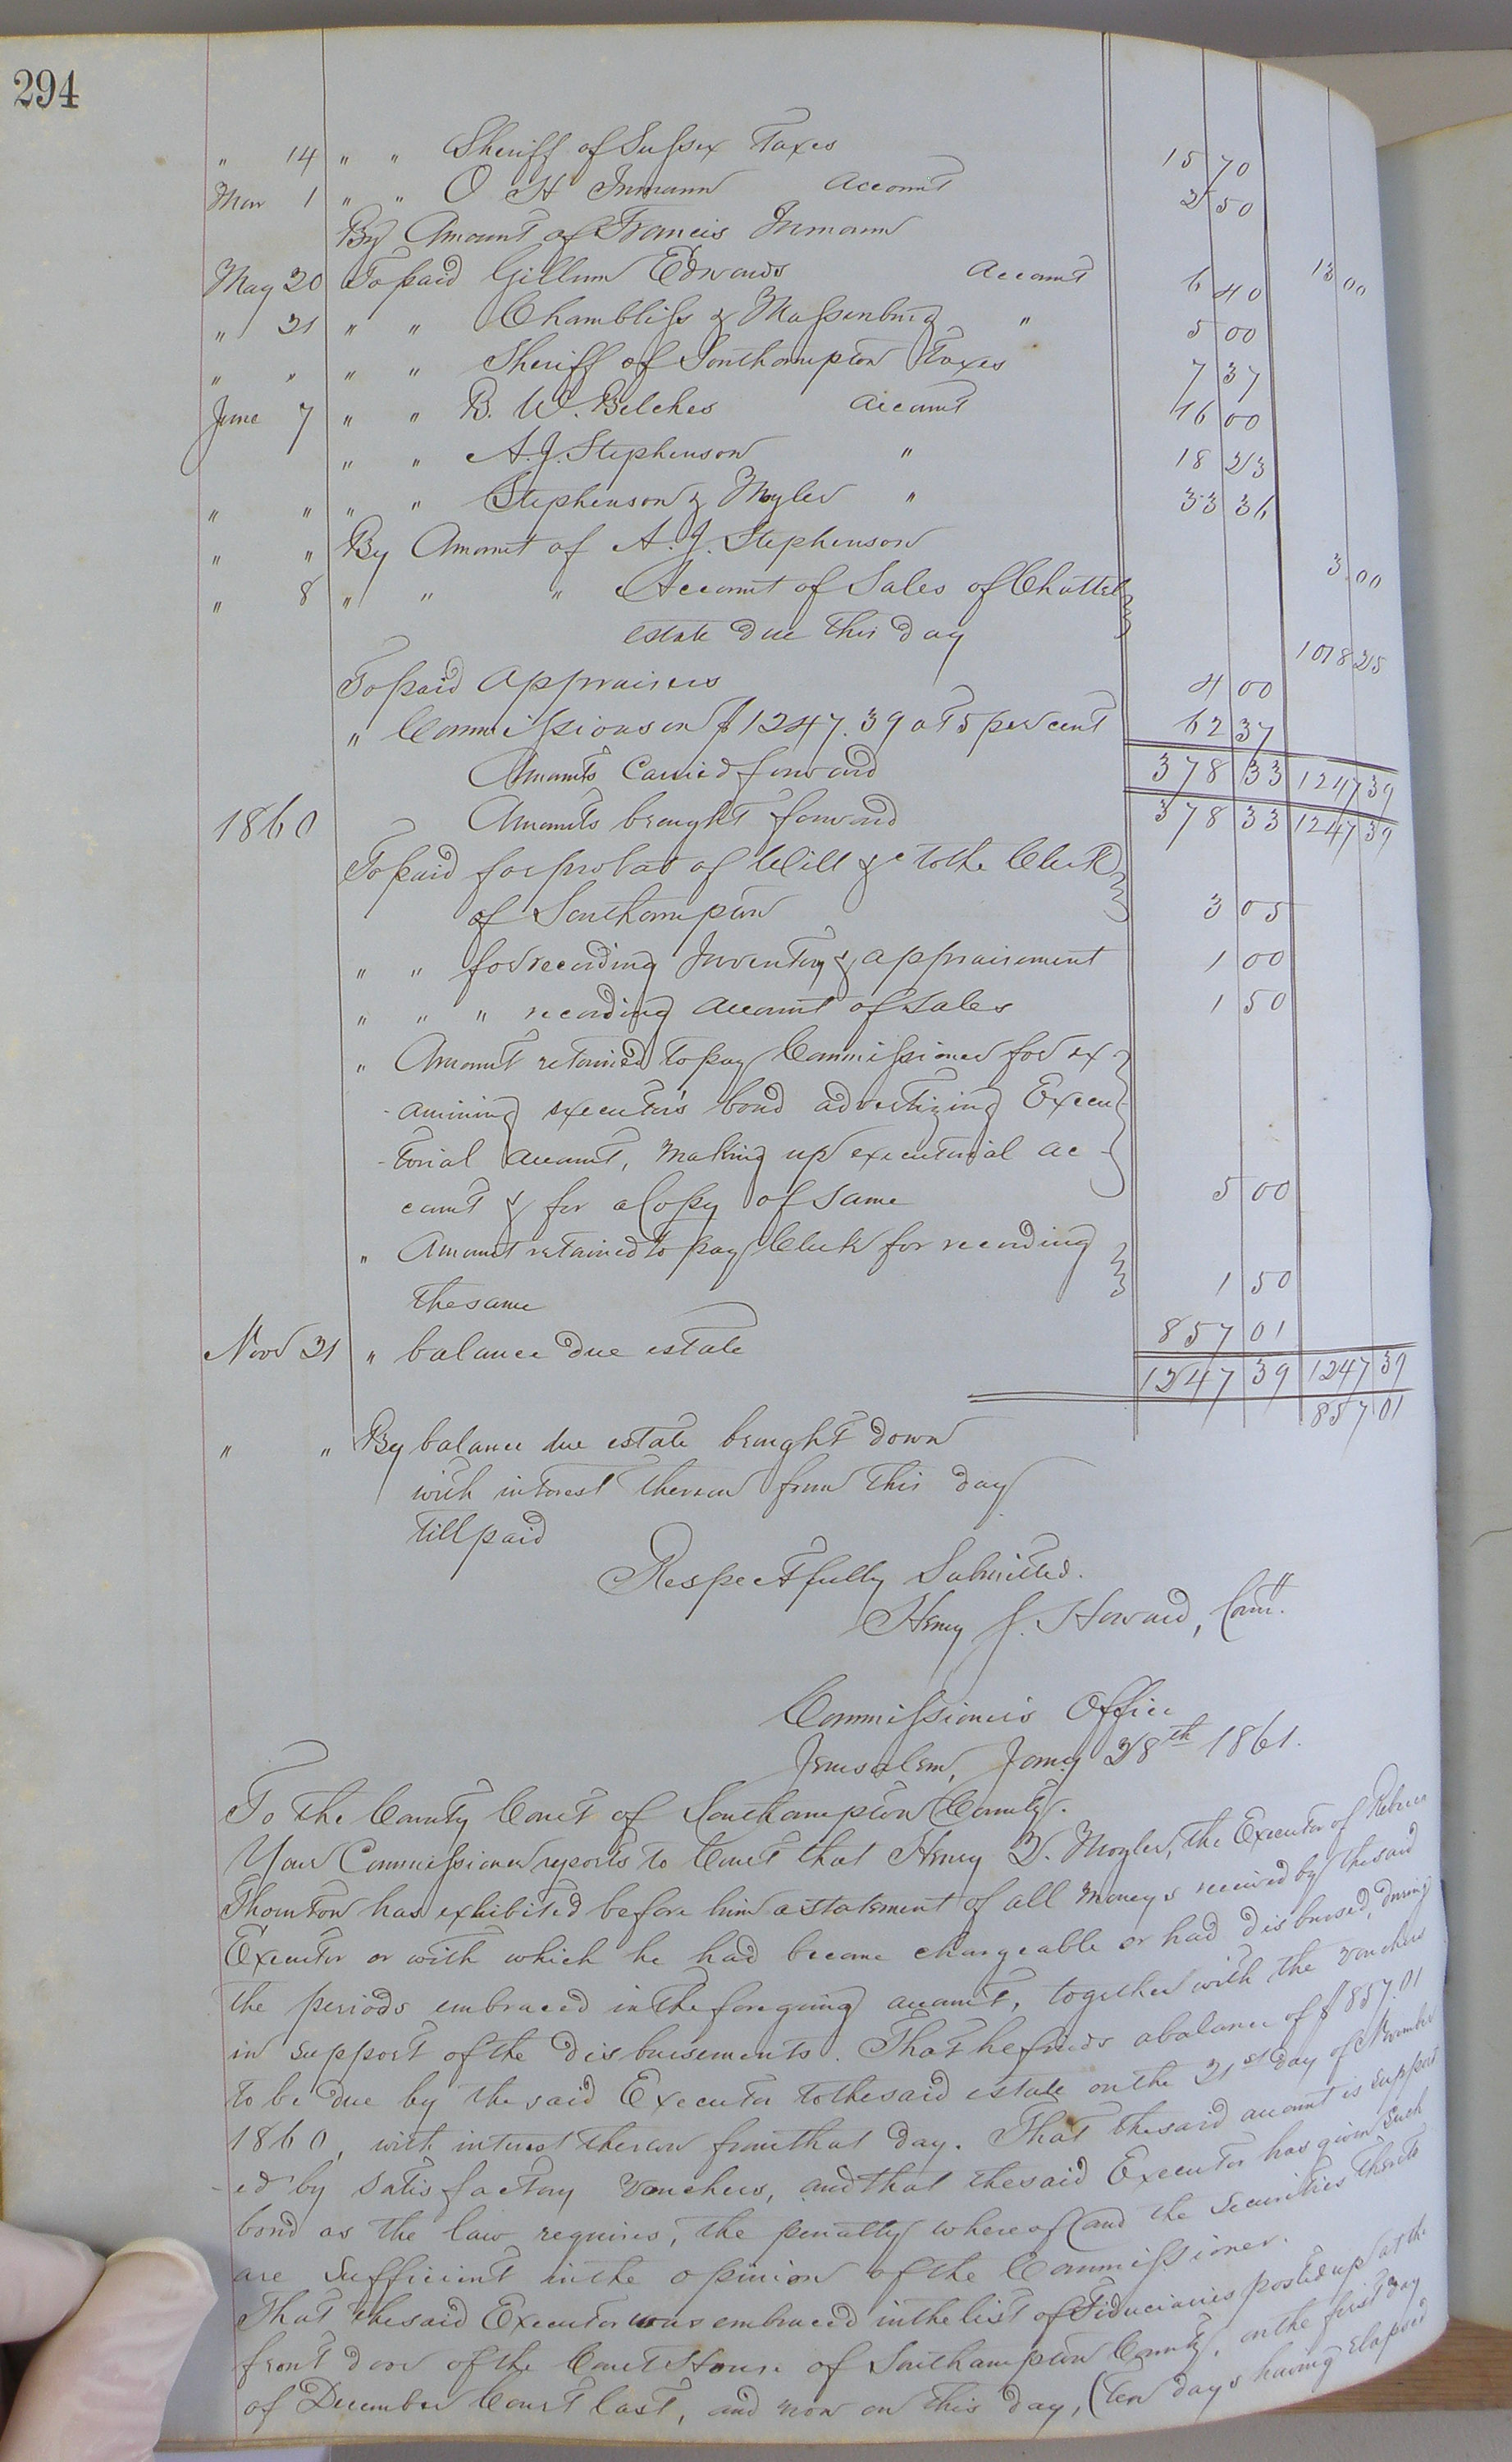 294
" 14 " " Sheriff of Sussex Taxes 15 70
Mar 1 " " O H Inmann Account 2 50
By Amount of Francis Inmann 13 00
May 20 To paid Gillum Edwards Account 6 40
" 21 " " Chambliss & Massenburg " 5 00
" " " " Sheriff of Southampton Taxes 7 37
June 7 " " B. W. Belches Account 16 00
" " A. J. Stephenson " 18 23
" " " " Stephenson & Moyler " 33 36
" " By Amount of A. J. Stephenson 3 00
" 8 " " " Account of Sales of Chattel
estate due this day 1018 25
To paid appraisers 4 00
" Commissions on $1247.39 at 5 per cent 62 37
Amounts Carried forward 378 33 1247 39
1860 Amounts brought forward 378 33 1247 39
To paid for probat of Will &c to the Clerk
of Southampton 3 05
" " for recording Inventory & appraisement 1 00
" " " recording account of sales 1 50
" Amount retained to pay Commissioner for ex-
-amining executor's bond advertizing Execu-
-torial account, making up executorial ac-
count & for a Copy of same 5 00
" Amount retained to pay Clerk for recording
the same 1 50
Nov 21 " balance due estate 857 01
1247 39 1247 39
" " By balance due estate brought down 857 01
with interest thereon from this day
till paid
Respectfully Submitted.
Henry J. Howard, Comr.
Commissioner's Office
Jerusalem, Jany 28th 1861.
To the County Court of Southampton County.
Your Commissioner reports to Court that Henry D. Moyler, the Executor of Rebecca
Thornton has exhibited before him a statement of all moneys received by the said
Executor or with which he had became chargeable or had disbursed, during
the periods embraced in the foregoing account, together with the vouchers
in support of the disbursements. That he finds a balance of $857.01
to be due by the said Executor to the said estate on the 21st day of November
1860, with interest thereon from that day. That the said account is support
-ed by satisfactory vouchers, and that the said Executor has given such
bond as the law requires, the penalty whereof and the securities thereto
are sufficient in the opinion of the Commissioner.
That the said Executor was embraced in the list of Fiduciaries posted up at the
front door of the Court House of Southampton County, on the first day
of December Court last, and now on this day, (ten days having elapsed